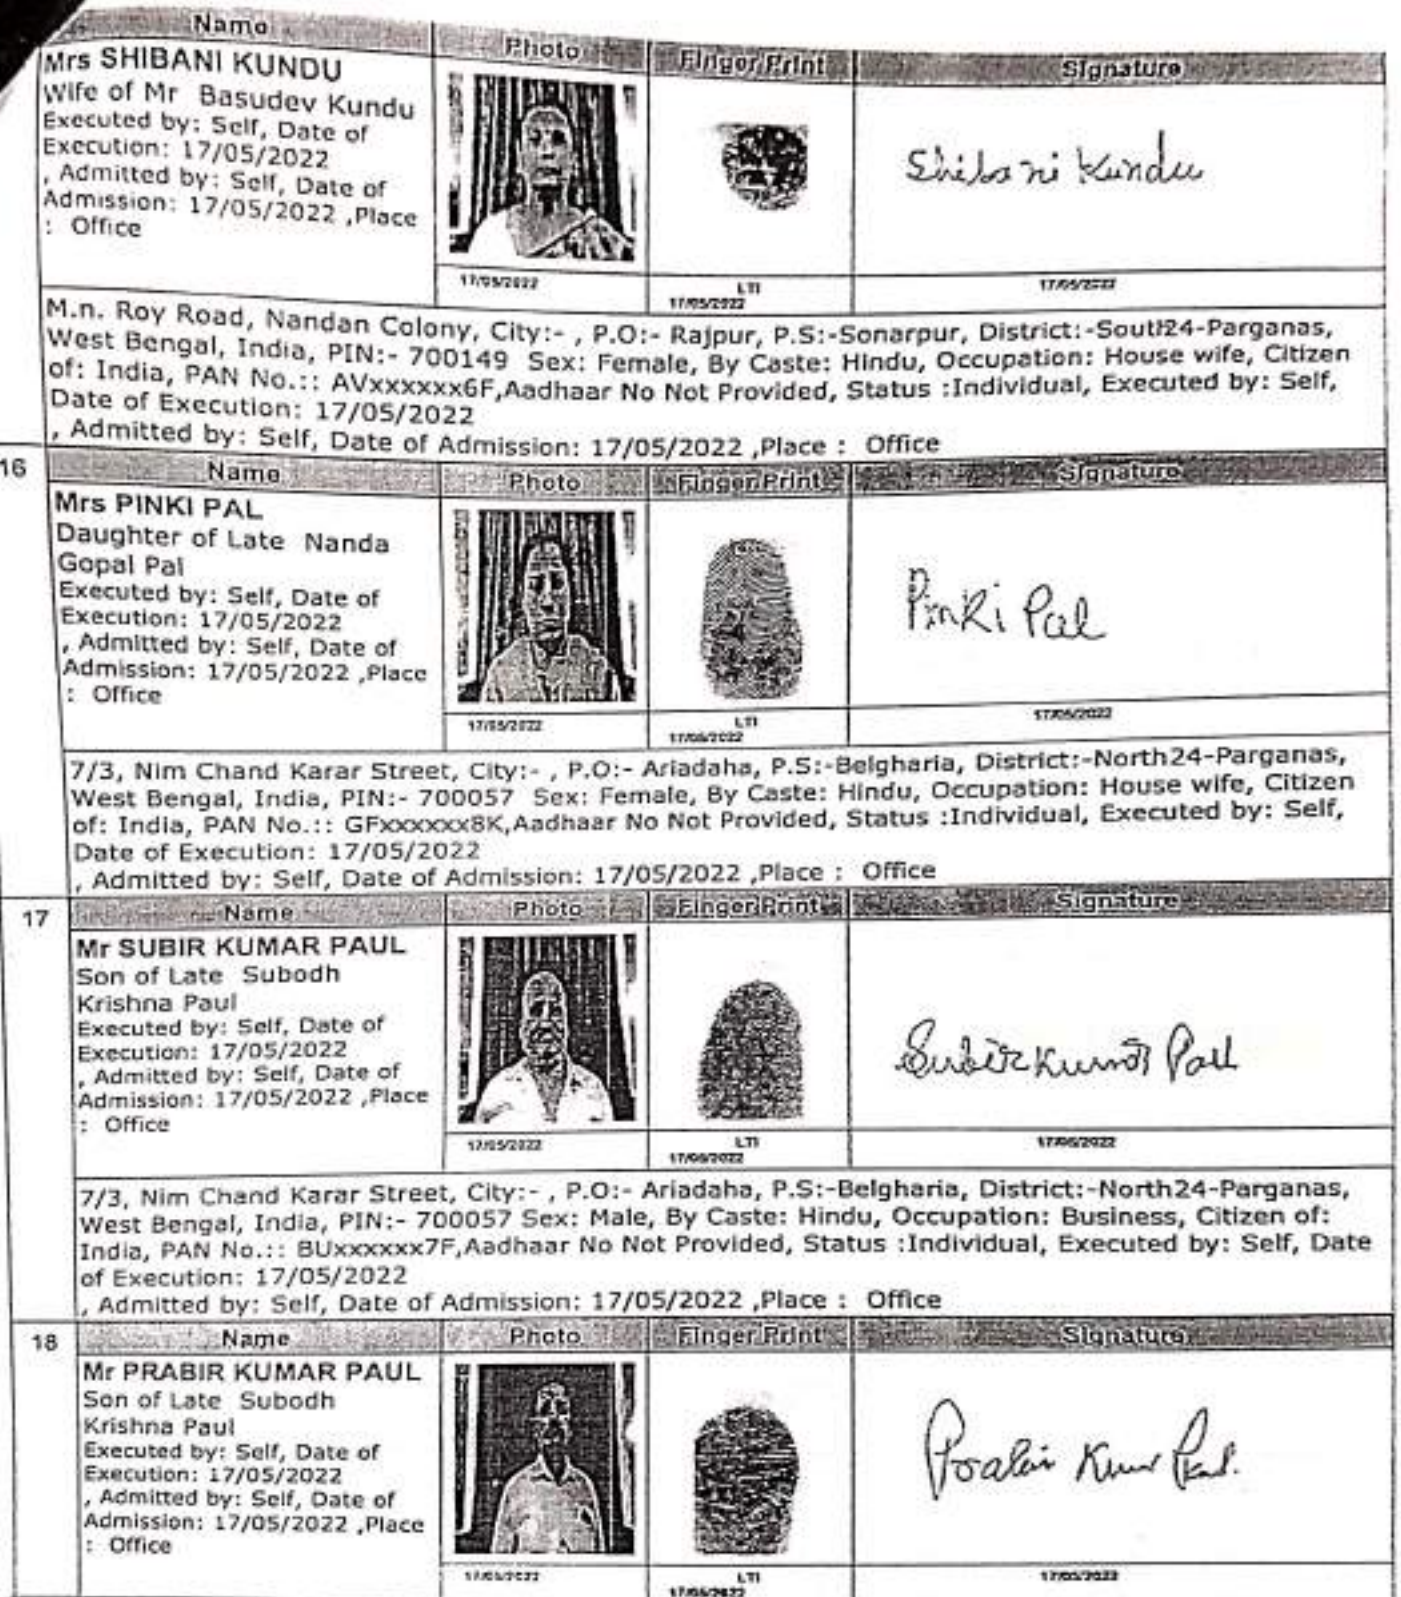 Name Photo Finger Print Signature
Mrs SHIBANI KUNDU
Wife of Mr Basudev Kundu
Executed by: Self, Date of
Execution: 17/05/2022
, Admitted by: Self, Date of
Admission: 17/05/2022 ,Place
: Office
Shibani Kundu
17/05/2022 LTI 17/05/2022
17/05/2022
M.n. Roy Road, Nandan Colony, City:- , P.O:- Rajpur, P.S:-Sonarpur, District:-South24-Parganas,
West Bengal, India, PIN:- 700149 Sex: Female, By Caste: Hindu, Occupation: House wife, Citizen
of: India, PAN No.:: AVxxxxxx6F,Aadhaar No Not Provided, Status :Individual, Executed by: Self,
Date of Execution: 17/05/2022
, Admitted by: Self, Date of Admission: 17/05/2022 ,Place : Office
16 Name Photo Finger Print Signature
Mrs PINKI PAL
Daughter of Late Nanda
Gopal Pal
Executed by: Self, Date of
Execution: 17/05/2022
, Admitted by: Self, Date of
Admission: 17/05/2022 ,Place
: Office
Pinki Pal
17/05/2022 LTI 17/05/2022
17/05/2022
7/3, Nim Chand Karar Street, City:- , P.O:- Ariadaha, P.S:-Belgharia, District:-North24-Parganas,
West Bengal, India, PIN:- 700057 Sex: Female, By Caste: Hindu, Occupation: House wife, Citizen
of: India, PAN No.:: GFxxxxxx8K,Aadhaar No Not Provided, Status :Individual, Executed by: Self,
Date of Execution: 17/05/2022
, Admitted by: Self, Date of Admission: 17/05/2022 ,Place : Office
17 Name Photo Finger Print Signature
Mr SUBIR KUMAR PAUL
Son of Late Subodh
Krishna Paul
Executed by: Self, Date of
Execution: 17/05/2022
, Admitted by: Self, Date of
Admission: 17/05/2022 ,Place
: Office
Subir Kumar Paul
17/05/2022 LTI 17/05/2022
17/05/2022
7/3, Nim Chand Karar Street, City:- , P.O:- Ariadaha, P.S:-Belgharia, District:-North24-Parganas,
West Bengal, India, PIN:- 700057 Sex: Male, By Caste: Hindu, Occupation: Business, Citizen of:
India, PAN No.:: BUxxxxxx7F,Aadhaar No Not Provided, Status :Individual, Executed by: Self, Date
of Execution: 17/05/2022
, Admitted by: Self, Date of Admission: 17/05/2022 ,Place : Office
18 Name Photo Finger Print Signature
Mr PRABIR KUMAR PAUL
Son of Late Subodh
Krishna Paul
Executed by: Self, Date of
Execution: 17/05/2022
, Admitted by: Self, Date of
Admission: 17/05/2022 ,Place
: Office
Prabir Kumar Paul.
17/05/2022 LTI 17/05/2022
17/05/2022